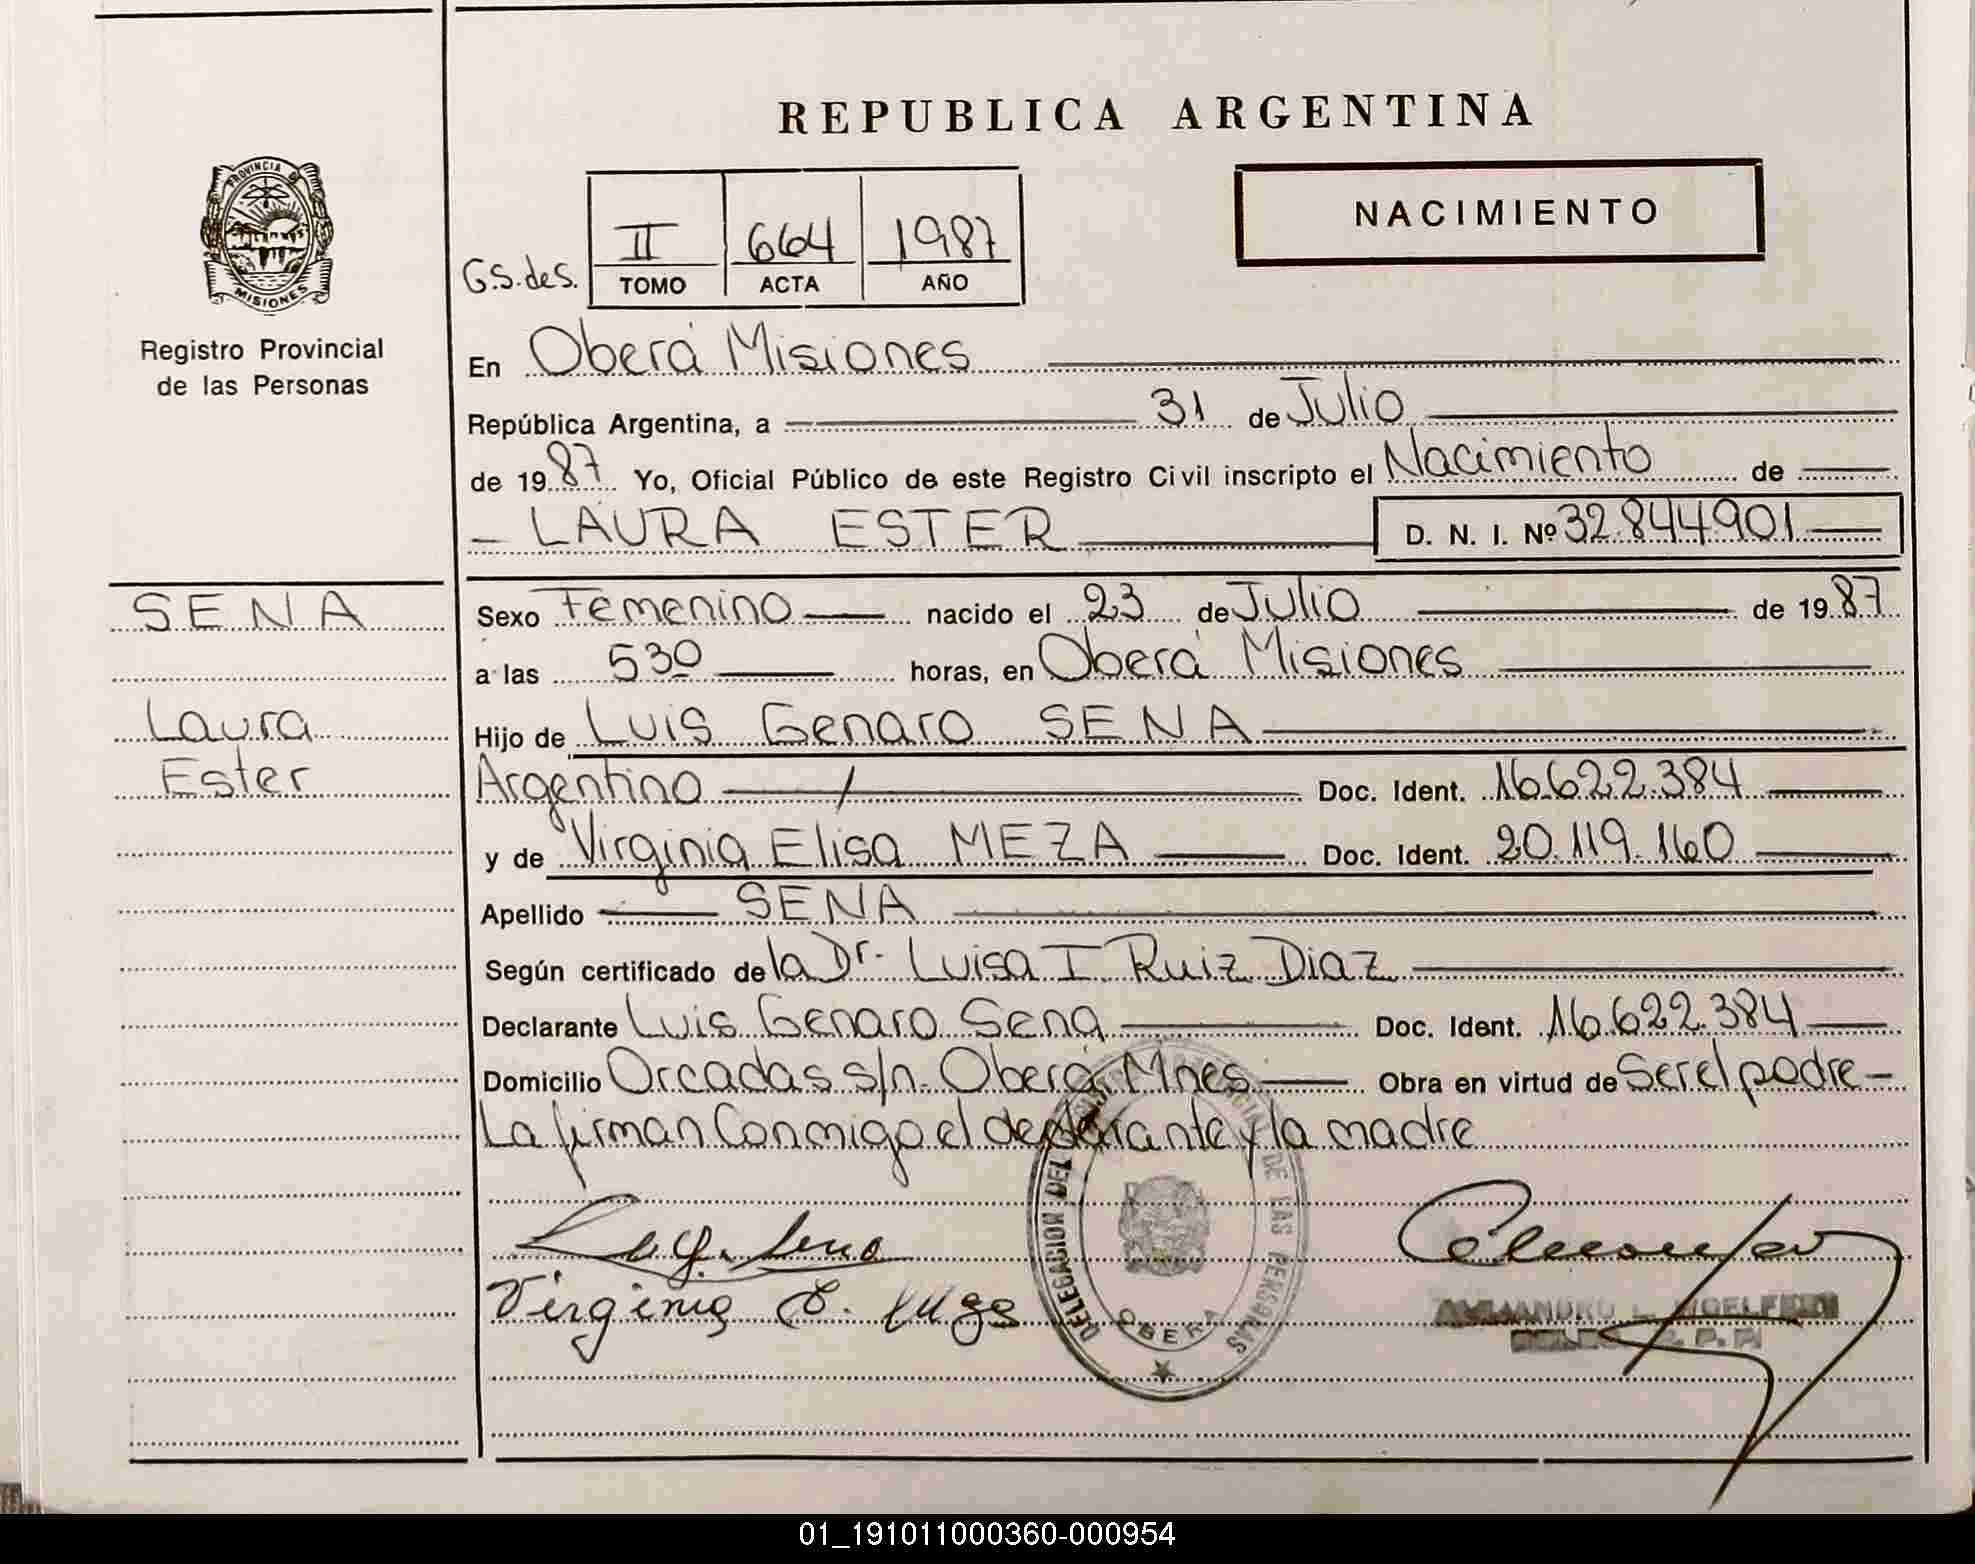 REPUBLICA ARGENTINA
NACIMIENTO
PROVINCIA DE
MISIONES
Registro Provincial
de las Personas
G.S.des.
II 664 1987
TOMO ACTA AÑO
En Oberá Misiones
República Argentina, a 31 de Julio
de 1987 Yo, Oficial Público de este Registro Civil inscripto el Nacimiento de
LAURA ESTER D. N. I. Nº 32.844.901
SENA
Laura
Ester
Sexo Femenino nacido el 23 de Julio de 1987
a las 530 horas, en Oberá Misiones
Hijo de Luis Genaro SENA
Argentino Doc. Ident. 16.622.384
y de Virginia Elisa MEZA Doc. Ident. 20.119.160
Apellido SENA
Según certificado de la Dr. Luisa I Ruiz Diaz
Declarante Luis Genaro Sena Doc. Ident. 16.622.384
Domicilio Orcadas s/n. Oberá Mnes Obra en virtud de Ser el padre
La firman Conmigo el declarante y la madre
Sena
Virginia E.
DELEGACION DEL DE LAS PERSONAS
OBERA
ALEJANDRO L.
01_191011000360-000954